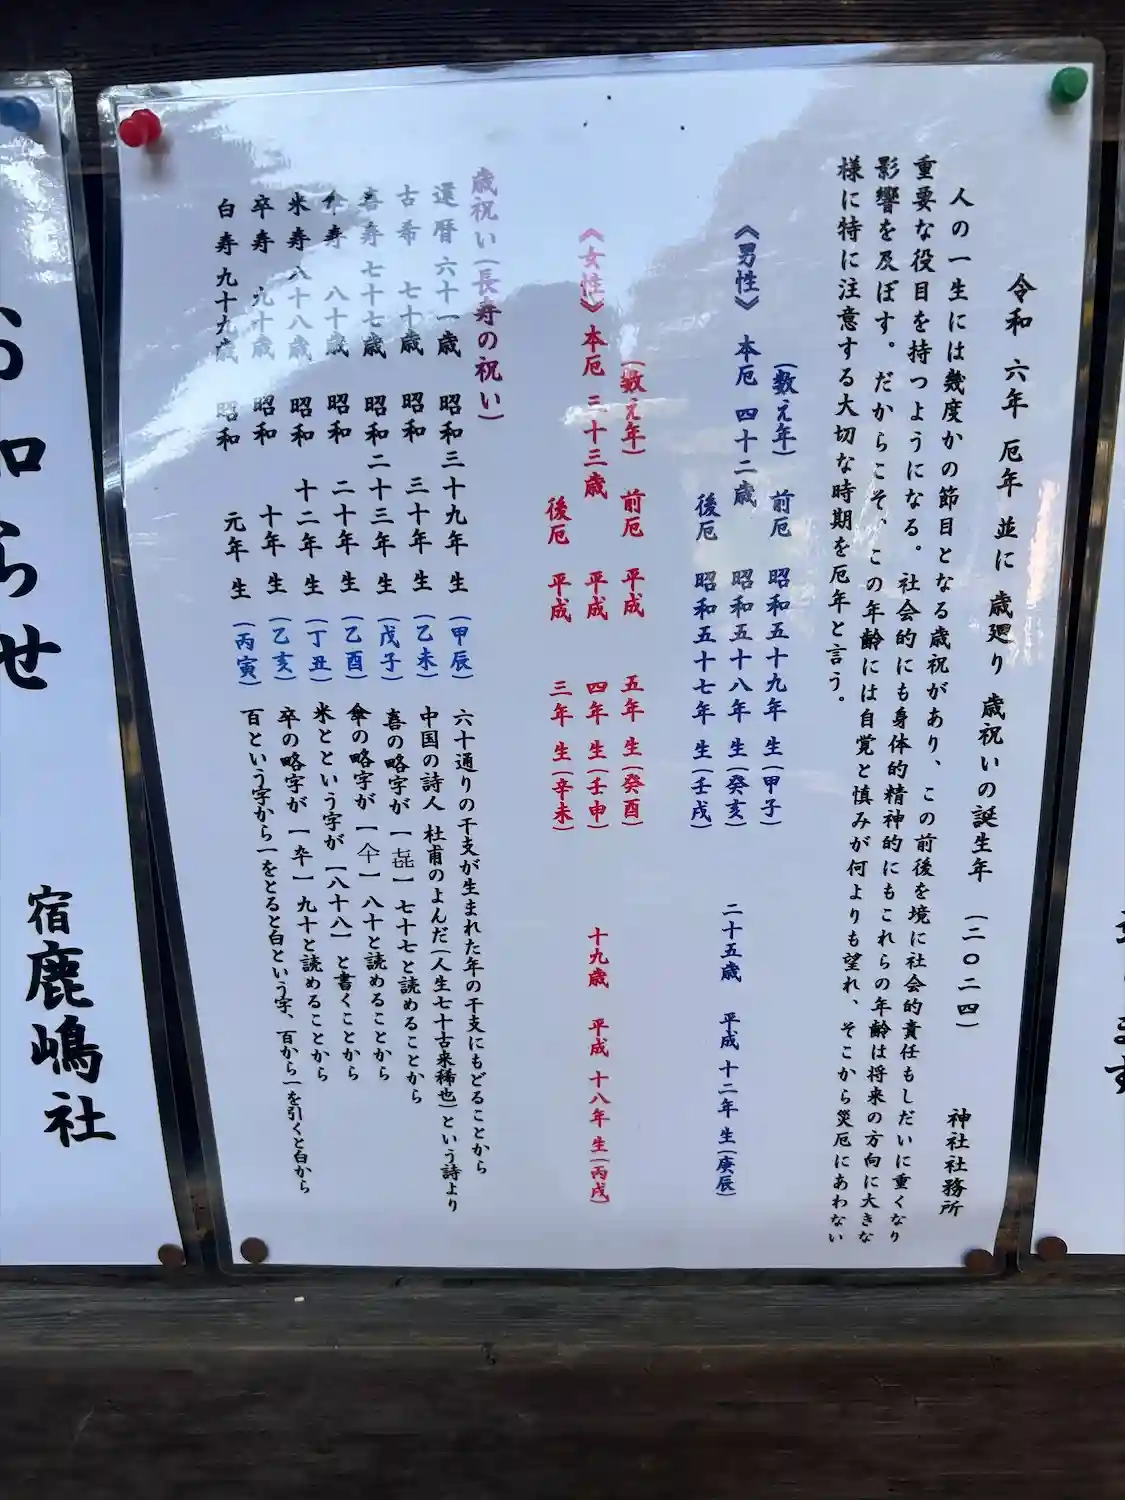 令和 六年 厄年 並に 歳廻り 歳祝いの誕生年 (二〇二四) 神社社務所
人の一生には幾度かの節目となる歳祝があり、この前後を境に社会的責任もしだいに重くなり
重要な役目を持つようになる。社会的にも身体的精神的にもこれらの年齢は将来の方向に大きな
影響を及ぼす。だからこそ、この年齢には自覚と慎みが何よりも望れ、そこから災厄にあわない
様に特に注意する大切な時期を厄年と言う。
(数え年) 前厄 昭和五十九年 生(甲子)
《男性》 本厄 四十二歳 昭和五十八年 生(癸亥) 二十五歳 平成 十二年 生(庚辰)
後厄 昭和五十七年 生(壬戌)
(数え年) 前厄 平成 五年 生(癸酉)
《女性》 本厄 三十三歳 平成 四年 生(壬申) 十九歳 平成 十八年 生(丙戌)
後厄 平成 三年 生(辛未)
歳祝い(長寿の祝い)
還暦 六十一歳 昭和 三十九年 生 (甲辰) 六十通りの干支が生まれた年の干支にもどることから
古希 七十歳 昭和 三十年 生 (乙未) 中国の詩人 杜甫のよんだ(人生七十古来稀也)という詩より
喜寿 七十七歳 昭和 二十三年 生 (戊子) 喜の略字が【㐂】七十七と読めることから
傘寿 八十歳 昭和 二十年 生 (乙酉) 傘の略字が【仐】八十と読めることから
米寿 八十八歳 昭和 十二年 生 (丁丑) 米とという字が【八十八】と書くことから
卒寿 九十歳 昭和 十年 生 (乙亥) 卒の略字が【卆】九十と読めることから
白寿 九十九歳 昭和 元年 生 (丙寅) 百という字から一をとると白という字、百から一を引くと白から
お知らせ
宿鹿嶋社